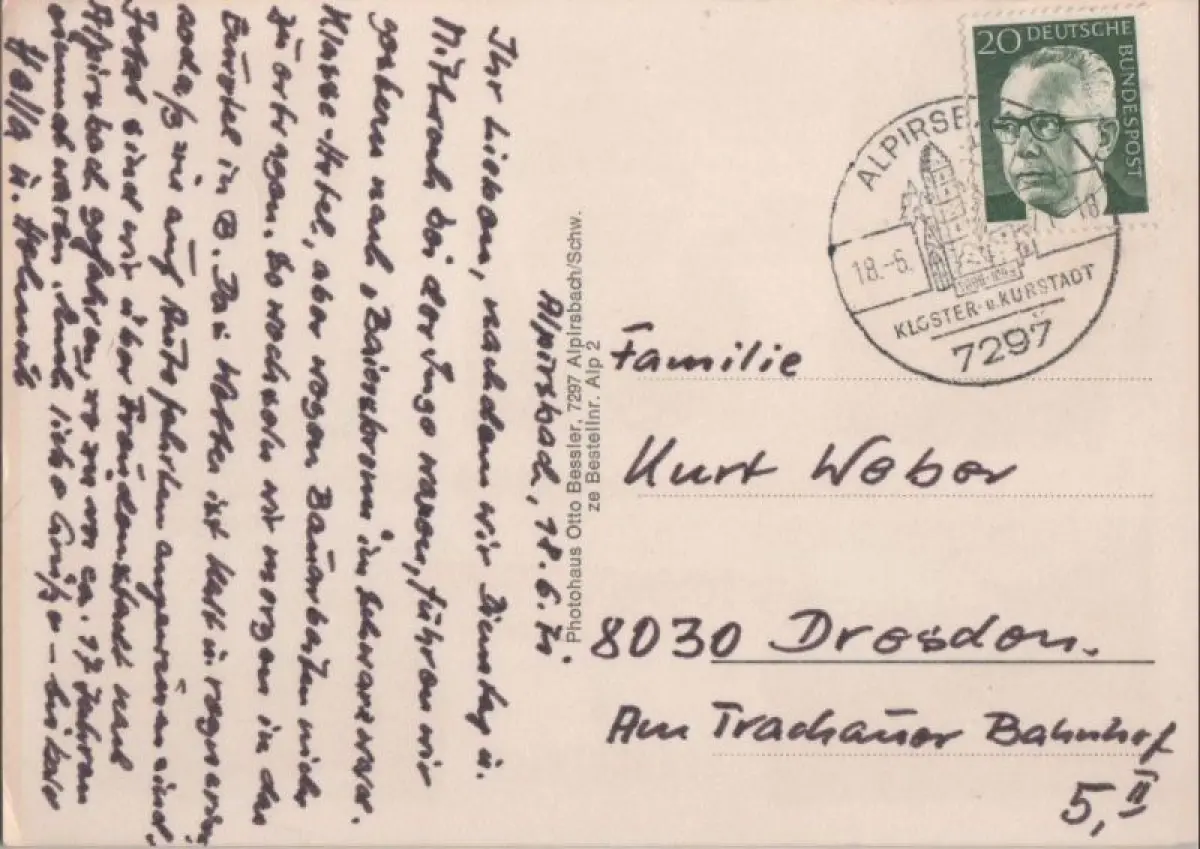 Alpirsbach, 18.6.71.
Ihr Lieben, nachdem wir Dienstag u.
Mittwoch bei der Inge waren, fuhren wir
gestern nach "Baiersbronn im Schwarzwald.
Klasse-Hotel, aber wegen Bauarbeiten nicht
zu ertragen. So wechseln wir morgen in das
Eurotel in B. Das Wetter ist kalt u. regnerisch
sodaß wir auf Autofahrten angewiesen sind.
Jetzt sind wir über Freudenstadt nach
Alpirsbach gefahren, wo wir vor ca. 17 Jahren
einmal waren. Euch liebe Grüße - bis bald
Helmut
Photohaus Otto Bessler, 7297 Alpirsbach/Schw.
ze Bestellnr. Alp 2
20 DEUTSCHE
BUNDESPOST
ALPIRSB
18.-6.
18
KLOSTER- u. KURSTADT
7297
Familie
Kurt Weber
8030 Dresden.
Am Trachauer Bahnhof
5, II